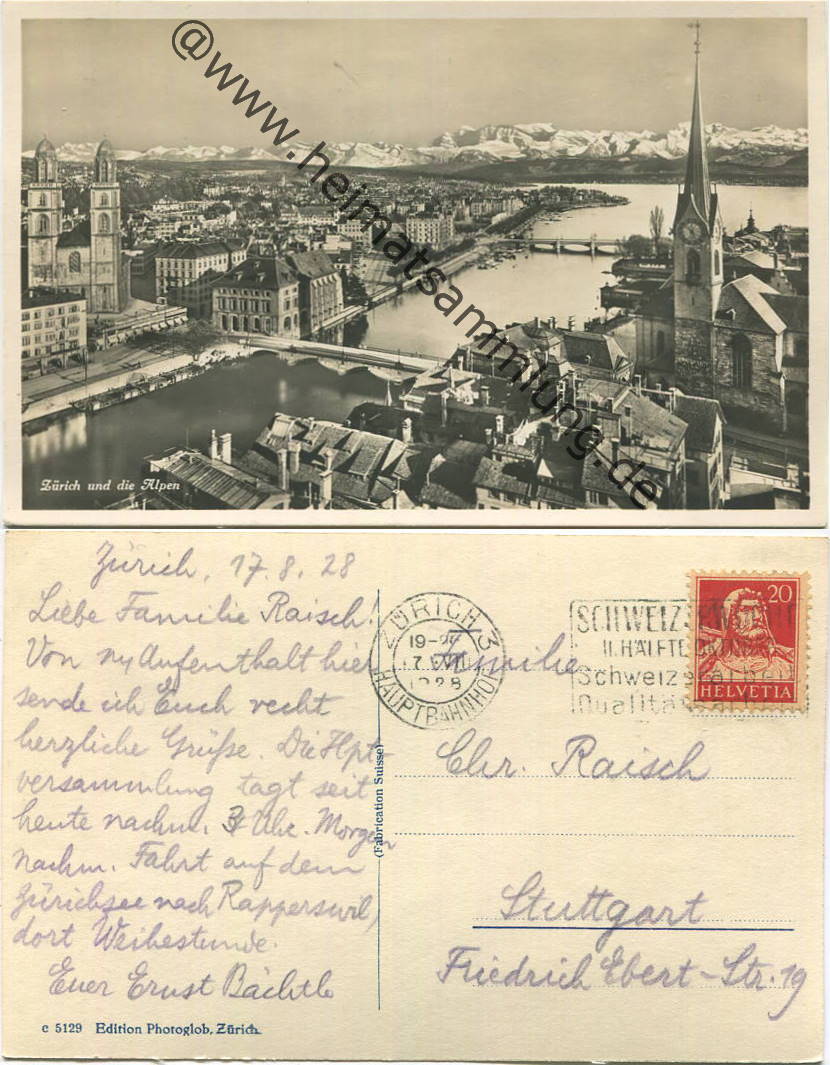 @www.heimatsammlung.de
Zürich und die Alpen
Zürich, 17.8.28
Liebe Familie Raisch!
Von m/ Aufenthalt hier
sende ich Euch recht
herzliche Grüße. Die Hpt-
versammlung tagt seit
heute nachm. 3 Uhr. Morgen
nachm. Fahrt auf dem
Zürichsee nach Rapperswil,
dort Weihestunde.
Euer Ernst Bächtle
c 5129 Edition Photoglob, Zürich.
(Fabrication Suisse)
ZÜRICH 3
19-20
17.VIII
1928
HAUPTBAHNHOF
SCHWEIZ
II. HÄLFTE
Schweizerarbeit
Qualität
20
HELVETIA
Familie
Chr. Raisch
Stuttgart
Friedrich Ebert-Str. 19